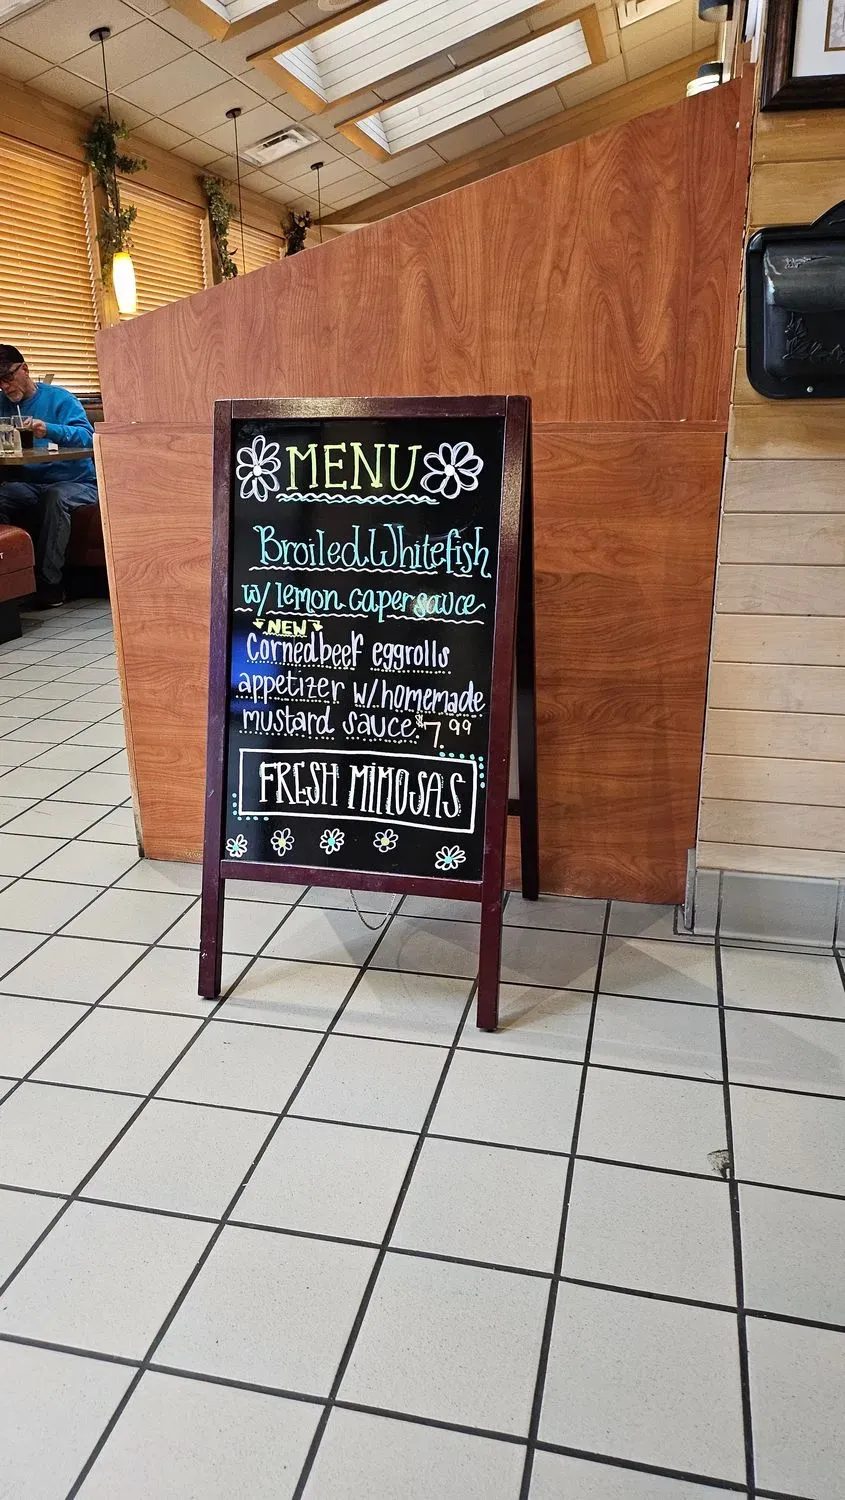 MENU
Broiled Whitefish
w/ lemon caper sauce
NEW
Corned beef eggrolls
appetizer w/ homemade
mustard sauce $7.99
FRESH MIMOSAS